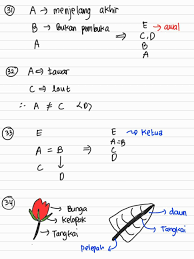 31) A → menjelang akhir
B → Bukan pembuka
A
⇒
E → awal
C, D
B
A
32) A ⇔ tawar
C ⇒ laut
∴ A ≠ C <D>
33) E
A = B
↓
C D
⇒
E → Ketua
A = B
C
D
34) Bunga
Kelopak
Tangkai
daun
Tangkai
Pelepah